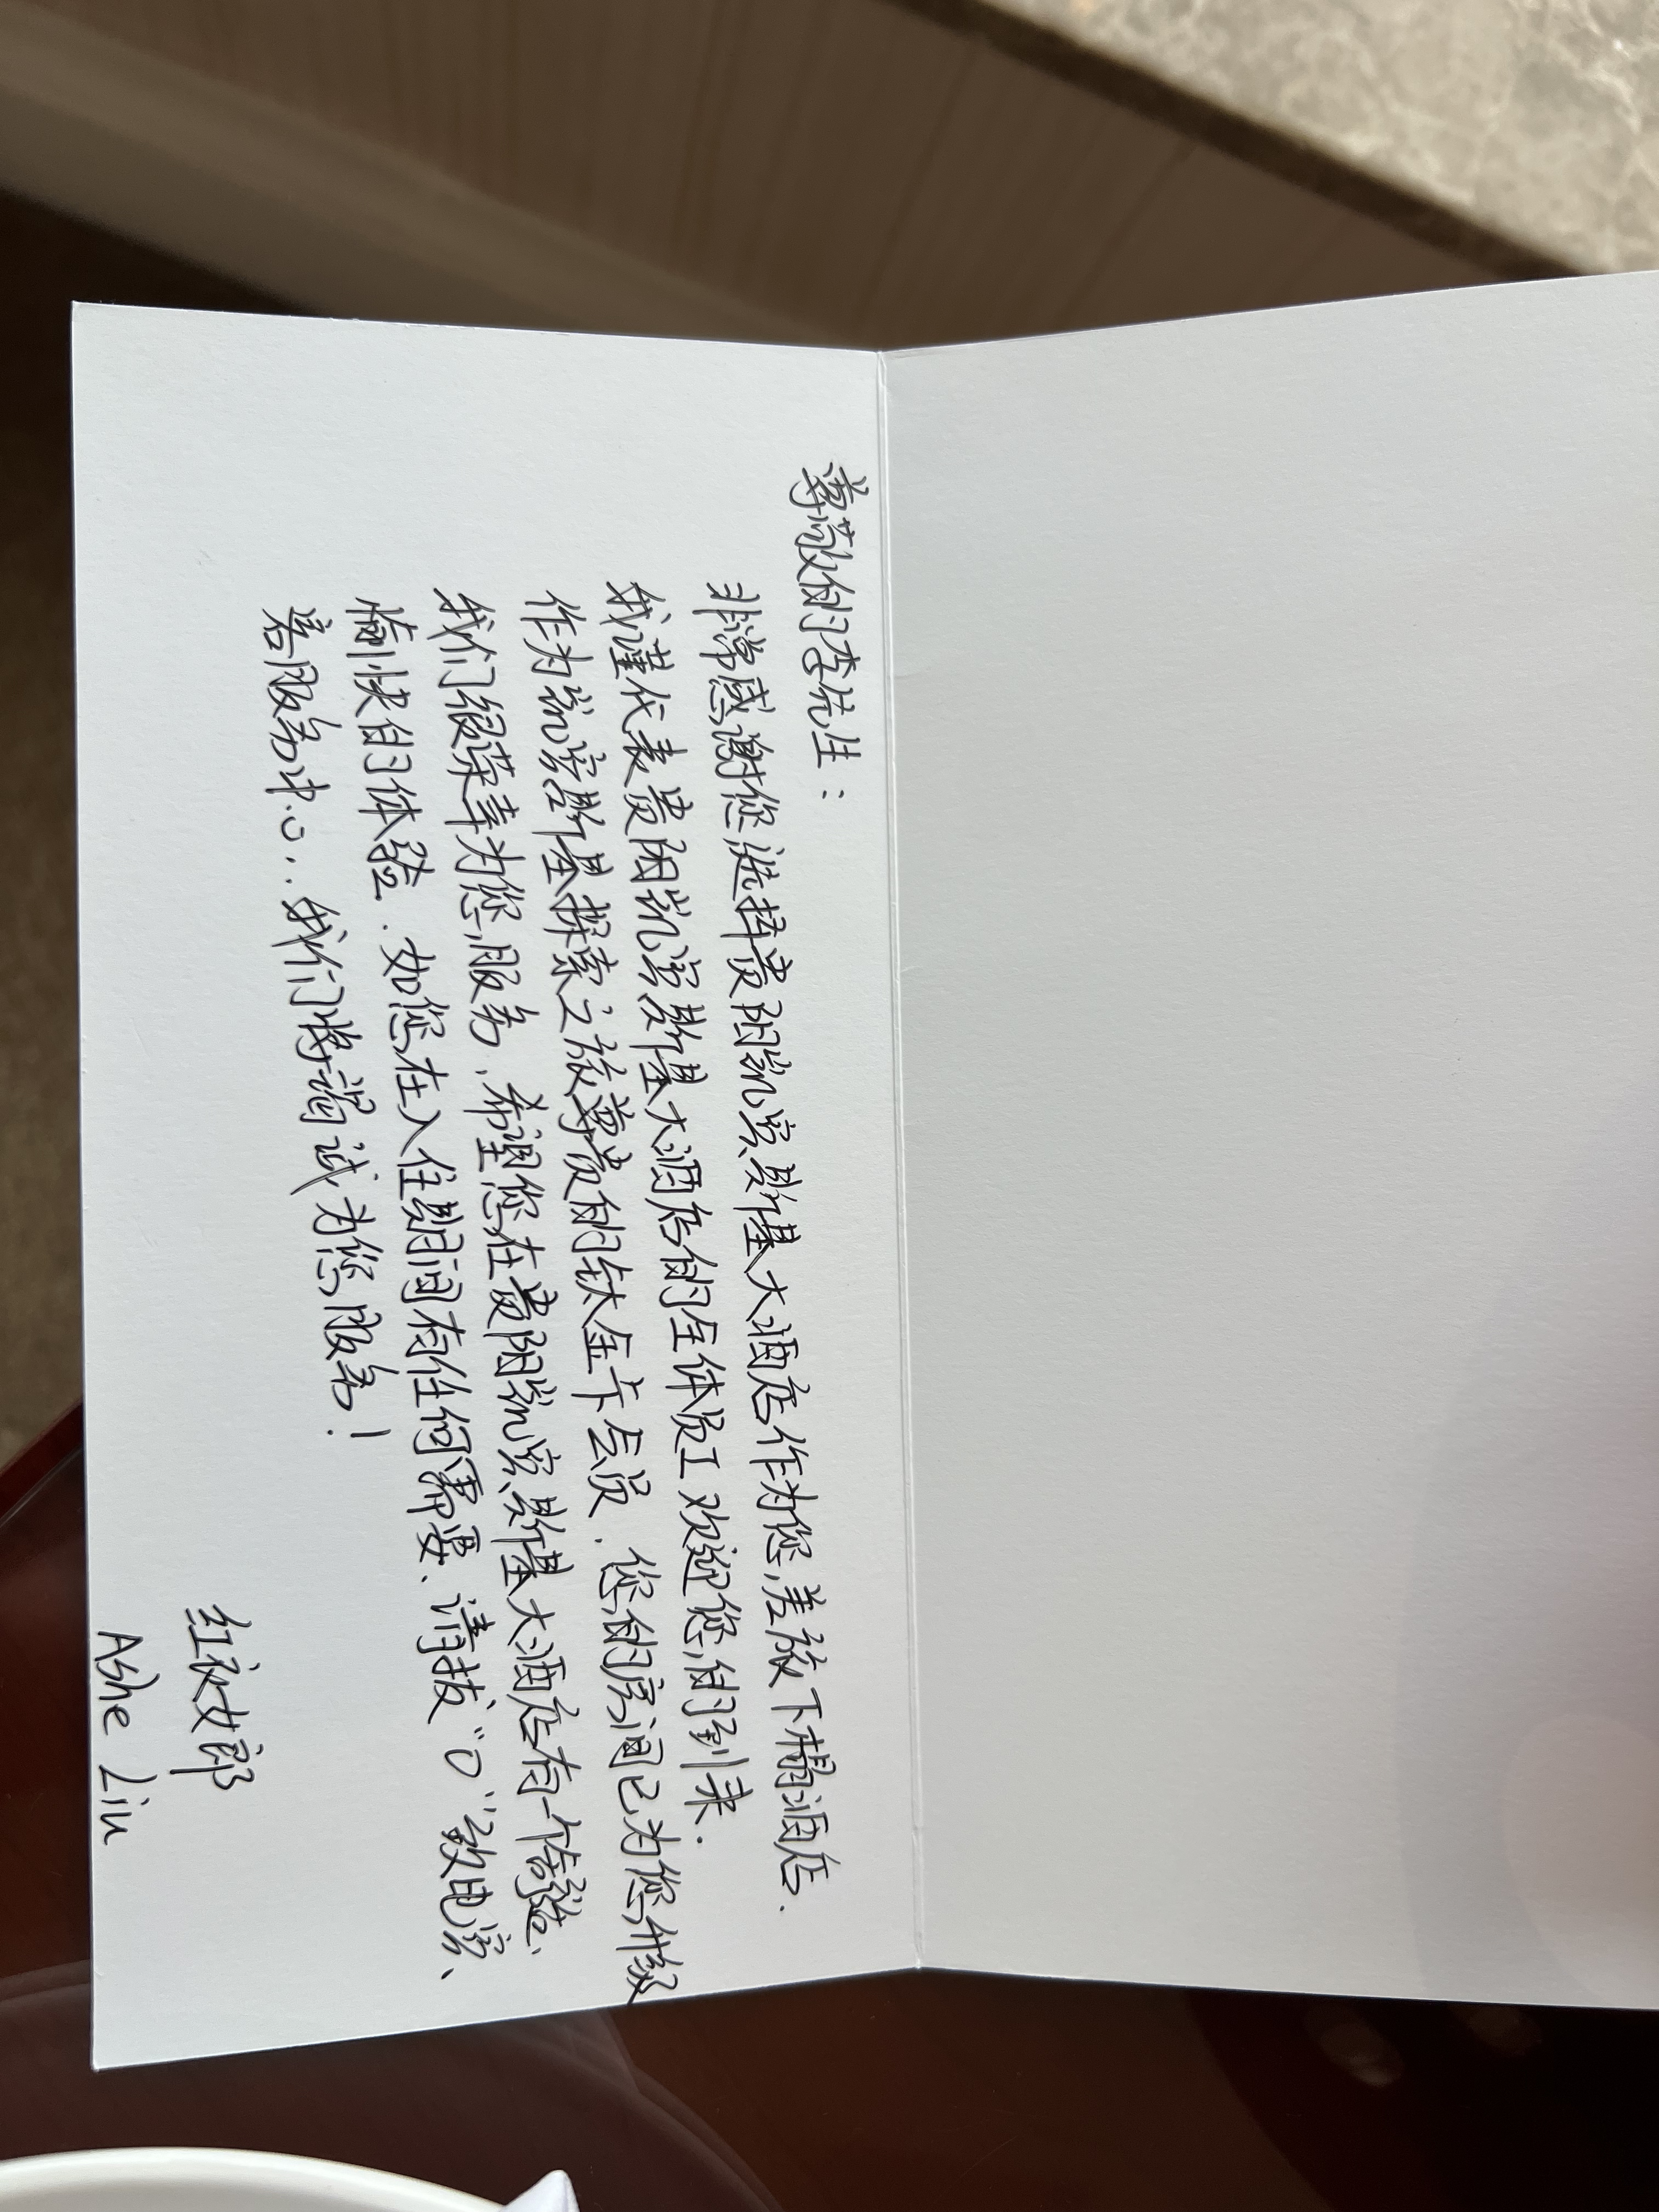 尊敬的李先生：
非常感谢您选择贵阳凯宾斯基大酒店作为您差旅下榻酒店.
我谨代表贵阳凯宾斯基大酒店的全体员工欢迎您的到来.
作为凯宾斯基探索之旅尊贵的钛金卡会员.您的房间已为您升级
我们很荣幸为您服务.希望您在贵阳凯宾斯基大酒店有一个舒适、
愉快的体验.如您在入住期间有任何需要、请拔“0”致电宾、
客服务中心..我们将竭诚为您服务！
红衣女郎
Ashe Liu